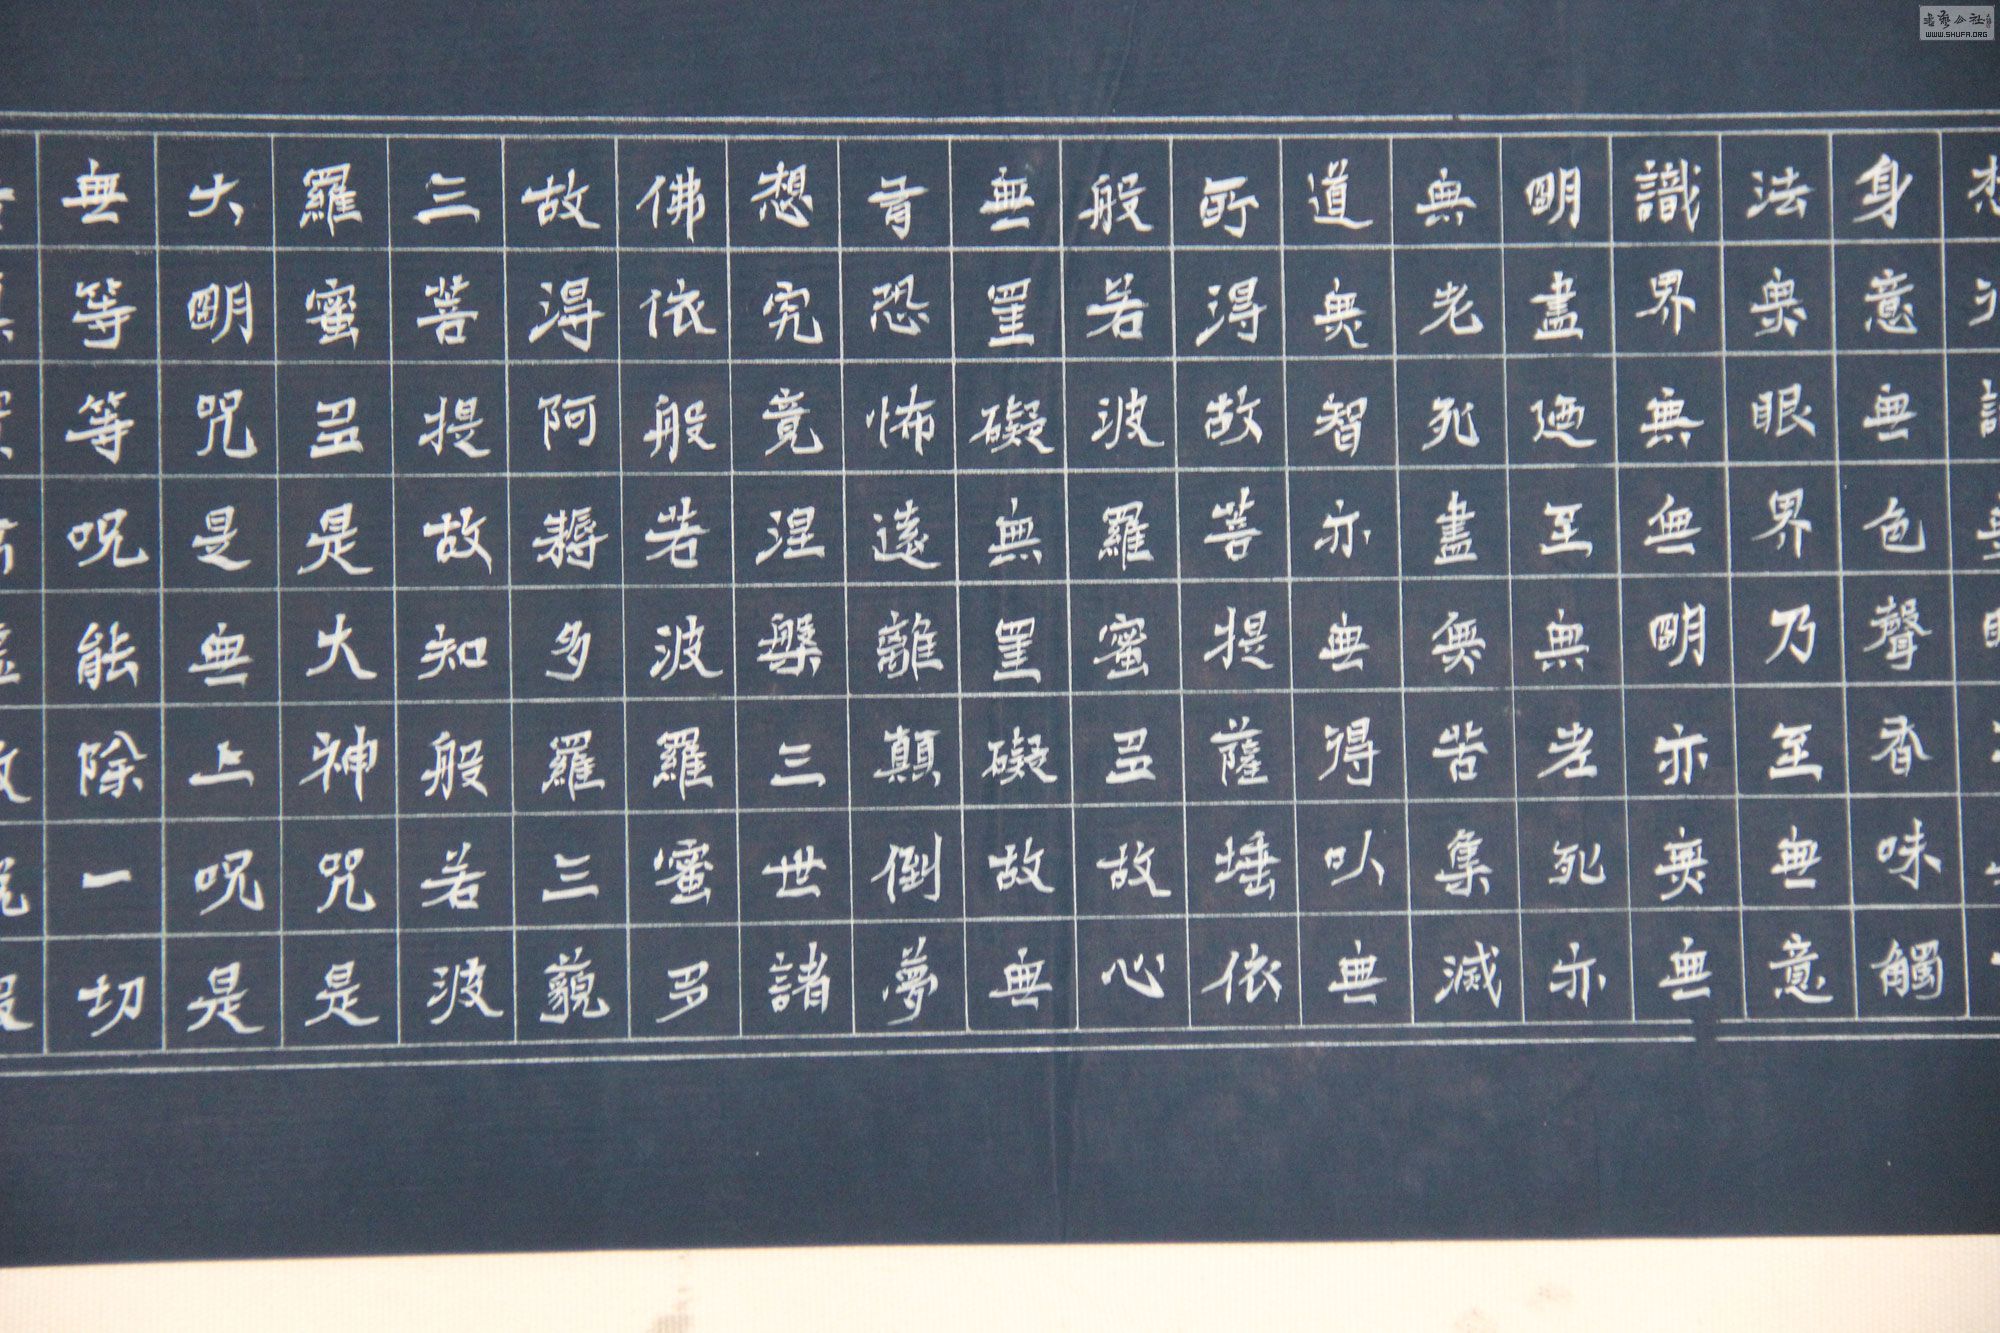 身意無色聲香味觸
法無眼界乃至無意
識界無無明亦無無
明盡廼至無老死亦
無老死盡無苦集滅
道無智亦無得以無
所得故菩提薩埵依
般若波羅蜜多故心
無罣礙無罣礙故無
有恐怖遠離顛倒夢
想究竟涅槃三世諸
佛依般若波羅蜜多
故得阿耨多羅三藐
三菩提故知般若波
羅蜜多是大神咒是
大明咒是無上呪是
無等等呪能除一切
WWW.SHUFA.ORG